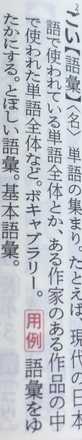 ごい【語彙】〈名〉単語の集まり。たとえば、現代の日本
語で使われている単語全体とか、ある作家のある作品の中
で使われた単語全体など。ボキャブラリー。用例 語彙をゆ
たかにする。とぼしい語彙。基本語彙。